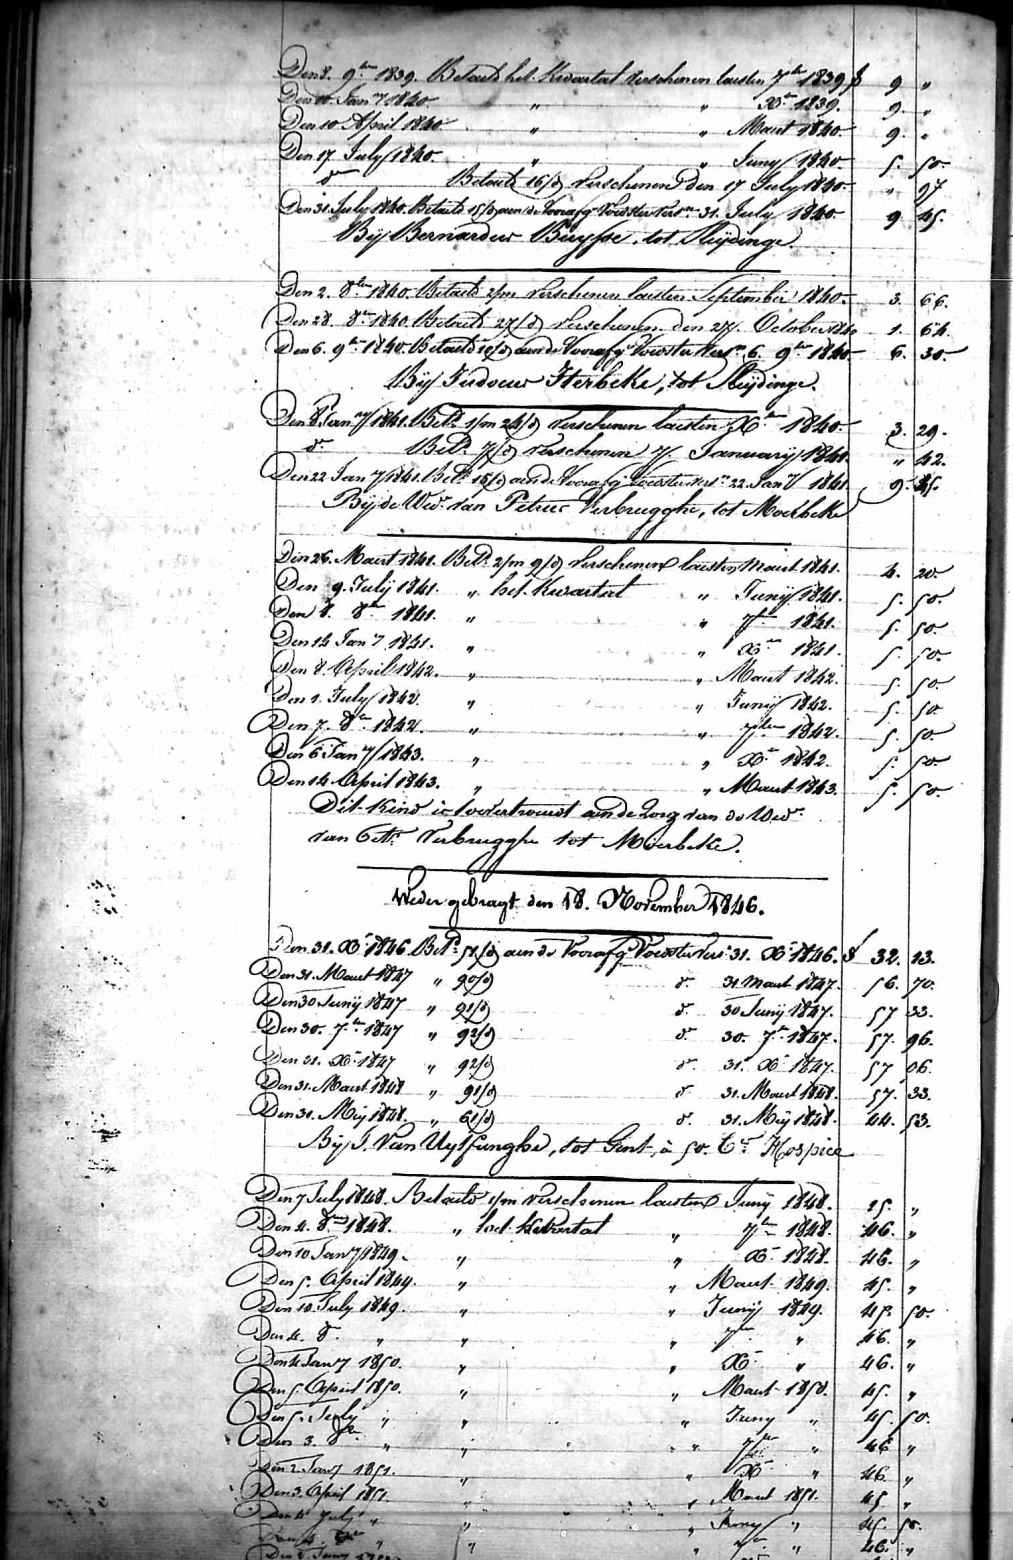 Den 8. 9bre 1839. Betaald het Kwartaal verschenen laesten 7bre 1839 f 9 „
Den 10. Jany 1840 „ „ Xbr 1839. 9. „
Den 10 April 1840 „ „ Maart 1840 9. „
Den 17 July 1840. „ „ Juny 1840. 5. 50.
do Betaald 16/d verschenen den 17 July 1840. „ 97
Den 31. July 1840. Betaald 15/d aen de Voorafg Voedster vers. 31. July 1840. 9. 45.
Bij Bernardus Buysse, tot Sleydinge.
Den 2. 8bre 1840. Betaald 2/m verschenen laesten September 1840. 3. 66.
Den 28. 8bre 1840. Betaald 27/d verschenen den 27. October 1840 1. 64.
Den 6. 9bre 1840. Betaald 10/d aen de Voorafg Voedster vers. 6. 9bre 1840 6. 30.
Bij Judocus Sterbeke, tot Sleydinge.
Den 8 Jany 1841. Betd. 1/m 24/d verschenen laesten Xbre 1840. 3. 29.
do Betd. 7/d verschenen 7 January 1841. „ 42.
Den 22 Jany 1841. Betd. 15/d aen de Voorafg Voedster vers. 22 Jany 1841. 9. 45.
Bij de Wed. van Petrus Verbrugghe, tot Moerbeke
Den 26. Maart 1841. Betd. 2/m 9/d verschenen laesten Maart 1841. 4. 20.
Den 9. July 1841. „ het Kwartaal „ Juny 1841. 5. 50.
Den 8. 8bre 1841. „ „ 7bre 1841. 5. 50.
Den 14 Jany 1841. „ „ Xbre 1841. 5. 50.
Den 8. April 1842. „ „ Maart 1842. 5. 50
Den 1. July 1842. „ „ Juny 1842. 5. 50
Den 7. 8bre 1842. „ „ 7bre 1842. 5. 50
Den 6 Jany 1843. „ „ Xbr 1842. 5. 50
Den 14 April 1843. „ „ Maart 1843. 5. 50.
Dit Kind is toevertrouwd aen de Zorg van de Wed.
van Verbrugghe tot Moerbeke.
Weder gebragt den 18. November 1846.
Den 31. Xbr 1846. Betd. 51/d aen de Voorafg Voedster vers 31. Xbr 1846. f 32. 13.
Den 31. Maart 1847 „ 90/d do. 31 Maart 1847. 56. 70.
Den 30 Juny 1847 „ 91/d do. 30 Juny 1847. 57 33.
Den 30. 7bre 1847 „ 92/d do. 30. 7br 1847. 57. 96.
Den 31. Xbr 1847 „ 92/d do. 31. Xbr 1847. 57 06.
Den 31. Maart 1848 „ 91/d do. 31. Maart 1848. 57. 33.
Den 31. Mey 1848. „ 61/d do. 31. Mey 1848. 44. 53.
Bij J. Van Uytfunghe, tot Gent, à 50. Cs Hospice
Den 7 July 1848. Betaald 1/m verschenen laesten Juny 1848. 15. „
Den 4. 8bre 1848. „ het Kwartaal „ 7bre 1848. 46. „
Den 10 Jany 1849. „ „ Xbr 1848. 46. „
Den 5. April 1849. „ „ Maart 1849. 45. „
Den 10. July 1849. „ „ Juny 1849. 45. 50.
Den 4. 8. „ „ „ 7bre „ 46. „
Den 4 Jany 1850. „ „ Xbr „ 46. „
Den 5. April 1850. „ „ Maart 1850. 45. „
Den 5. July „ „ „ Juny „ 45. 50.
Den 3. 8bre „ „ „ 7bre „ 46 „
Den 2. Jany 1851. „ „ Xbr „ 46. „
Den 3. April 1851. „ „ Maart 1851. 45. „
Den 4 July „ „ „ Juny „ 45. 50.
Den 4. 8bre „ „ „ 7bre „ 46. „
Den 2. Jany